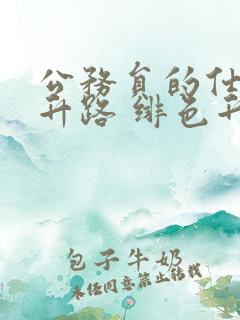 公務員的仕
升路 緋色升
包子牛奶
未经同意禁止转载